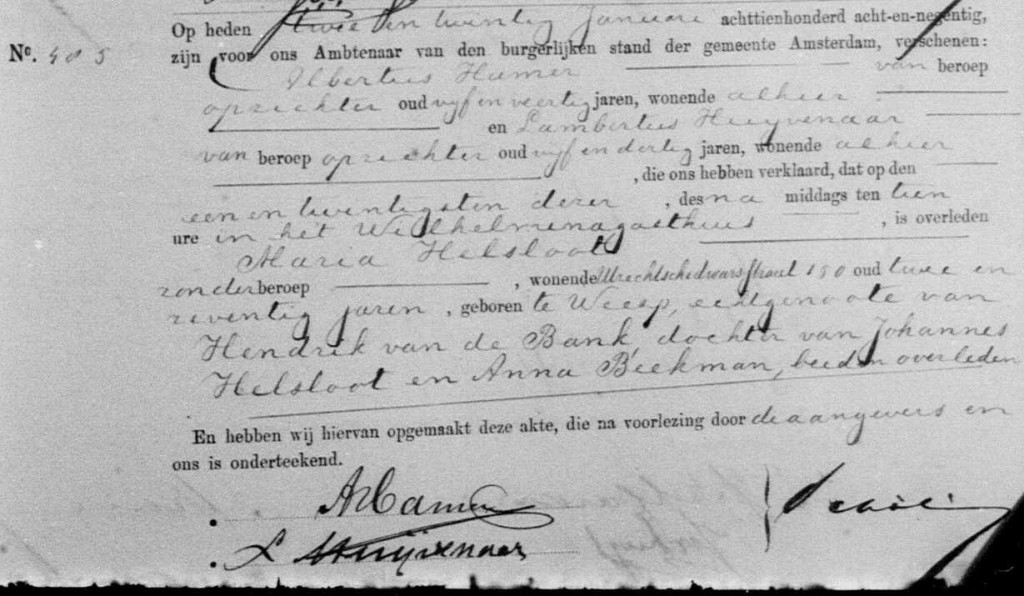 Op heden twee en twintig Januari achttienhonderd acht-en-negentig,
No. 405 zijn voor ons Ambtenaar van den burgerlijken stand der gemeente Amsterdam, verschenen:
Albertus Hamer van beroep
opzichter oud vijf en veertig jaren, wonende alhier
en Lambertus Huyvenaar
van beroep opzichter oud vijf en dertig jaren, wonende alhier
, die ons hebben verklaard, dat op den
een en twintigsten dezer , des na middags ten tien
ure in het Wilhelminagasthuis , is overleden
Maria Helsloot
zonder beroep , wonende Utrechtschedwarsstraat 130 oud twee en
zeventig jaren , geboren te Weesp, echtgenoote van
Hendrik van de Bank, dochter van Johannes
Helsloot en Anna Beekman, beiden overleden
En hebben wij hiervan opgemaakt deze akte, die na voorlezing door de aangevers en
ons is onderteekend.
AHamer
L Huijvenaar